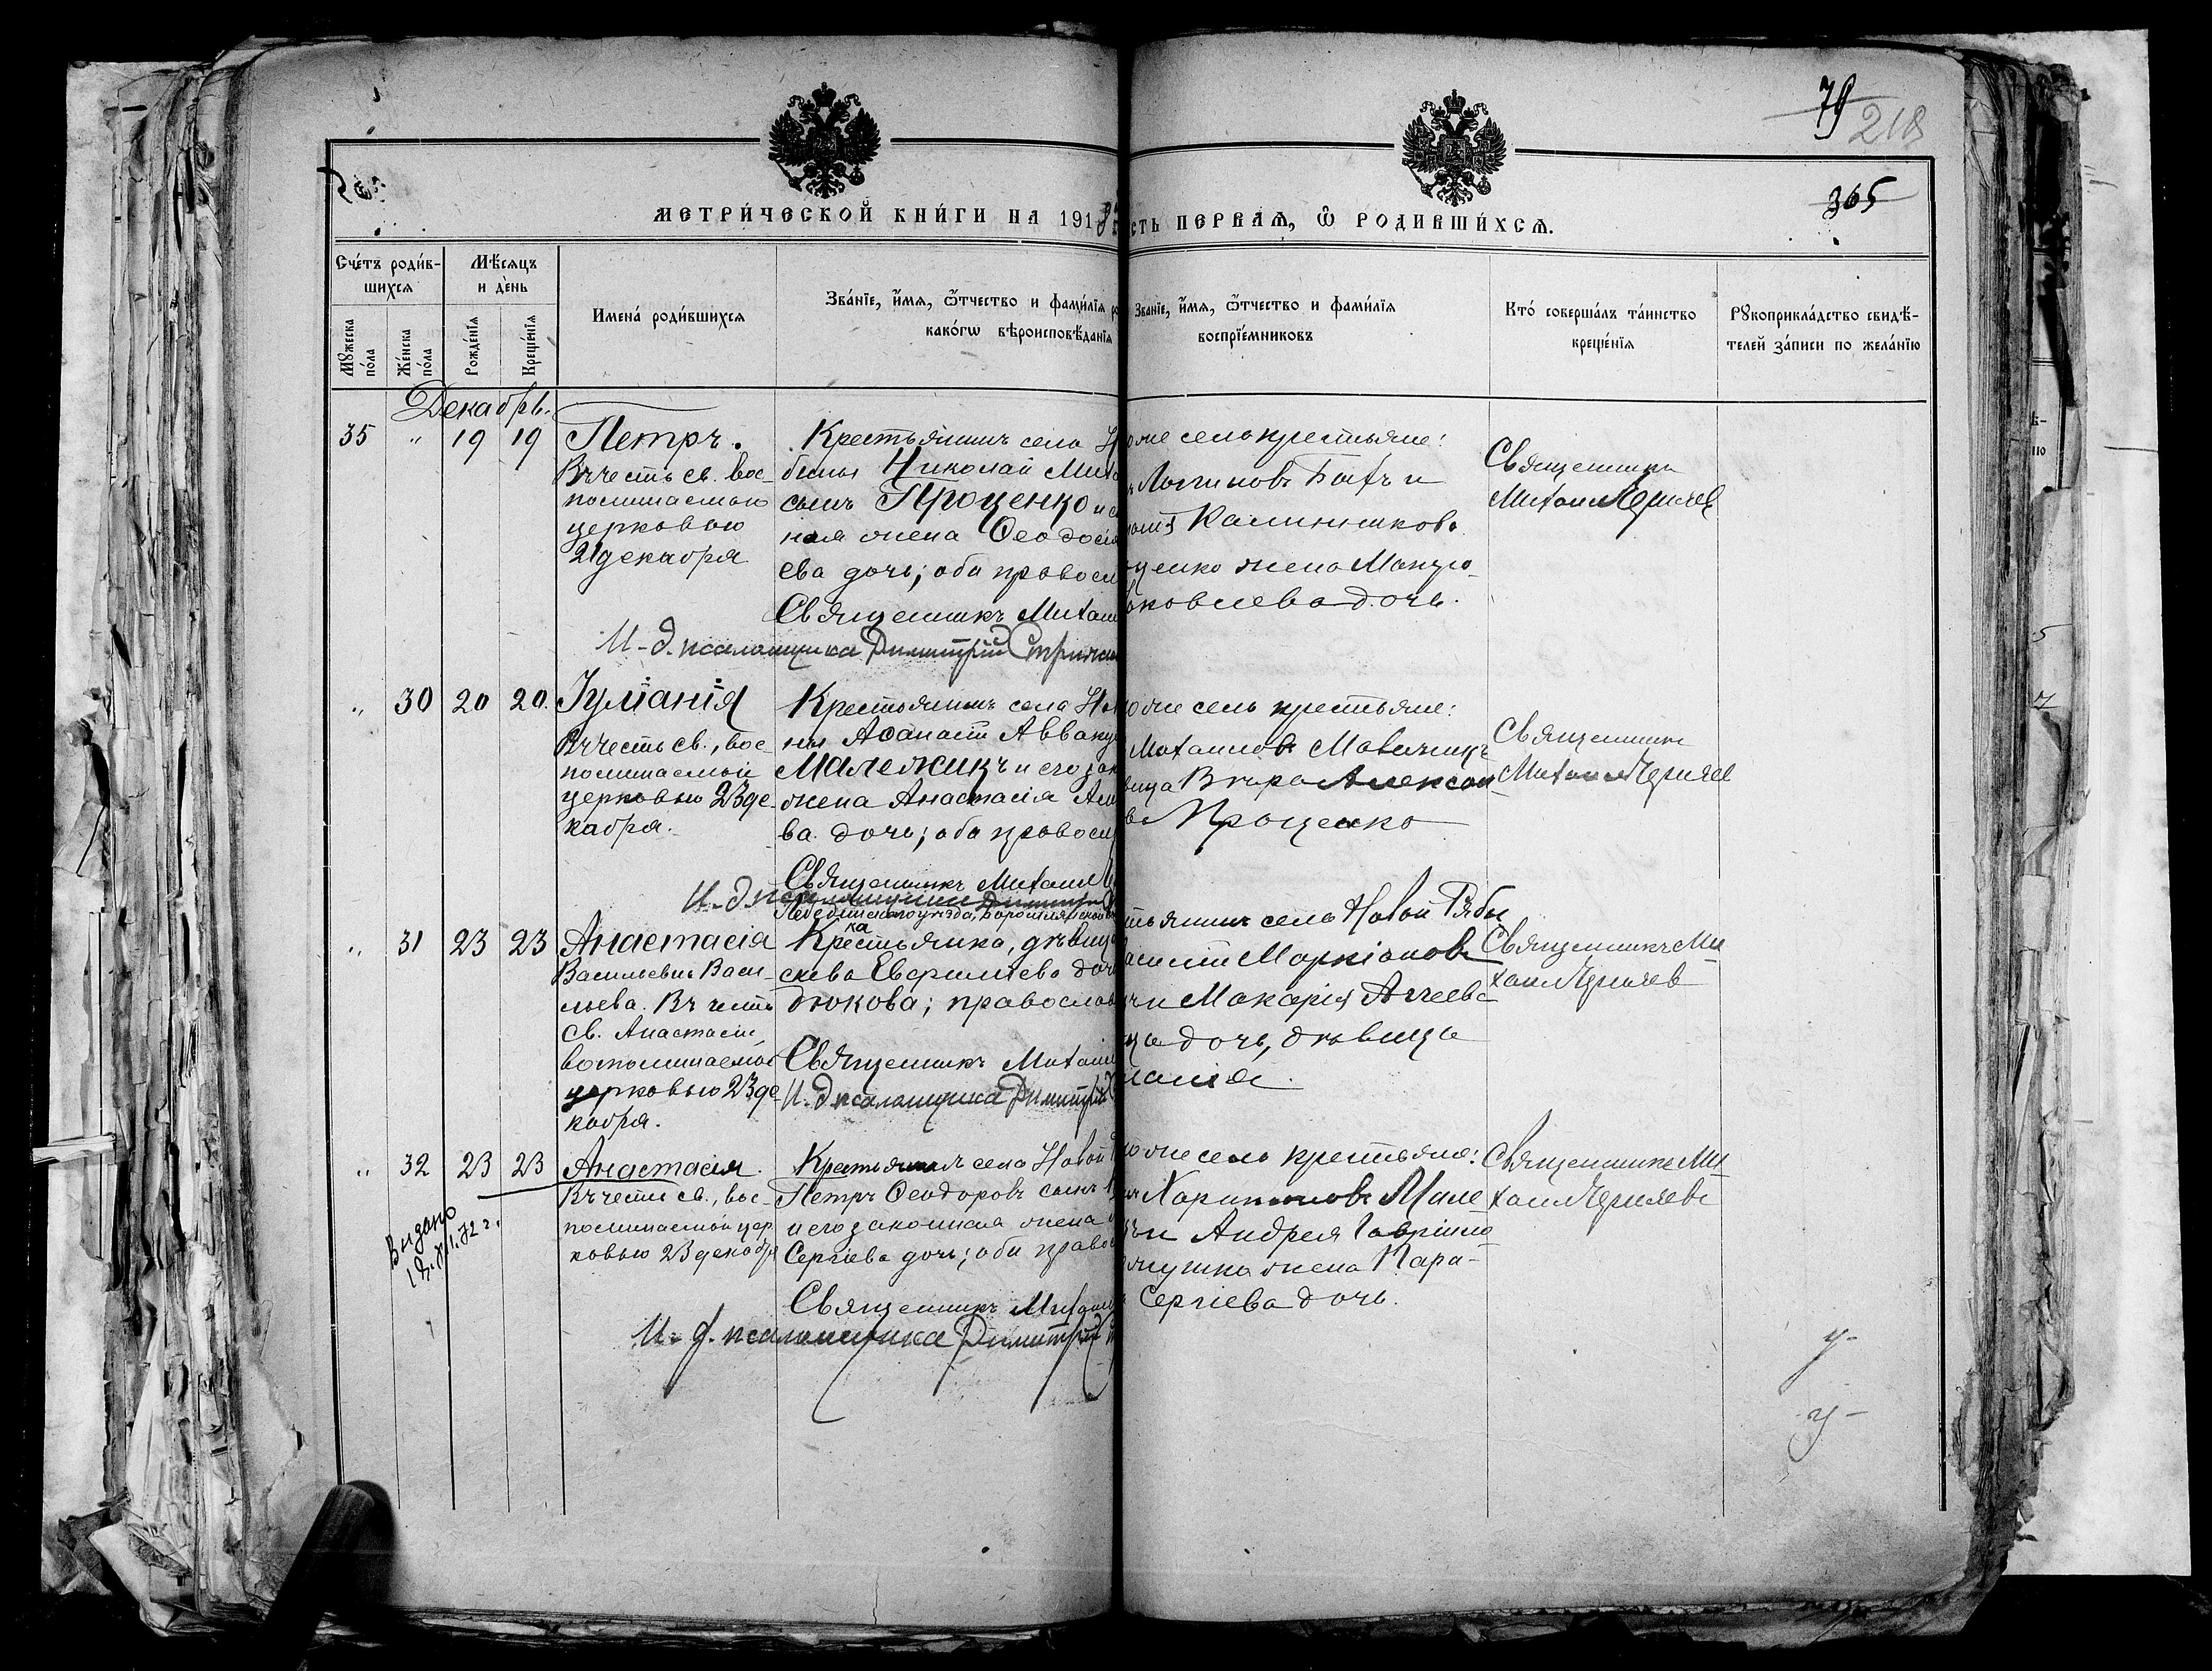 79
218
365
МЕТРИ́ЧЕСКОЙ КНИ́ГИ НА 1913
СТЬ ПЕРВАѦ, Ѿ РОДИВШИ́ХСѦ.
Сче́тъ роди́в-
шихсѧ
Мѣ́сѧцъ
и де́нь
Мꙋжеска
по́ла
Же́нска
по́ла
Рожде́нїѧ
Креще́нїѧ
Имена́ роди́вшихсѧ
Зва́нїе, и́мѧ, ѿтчество и фами́лїѧ
како́гѡ вѣроисповѣ́данїѧ
Зва́нїе, и́мѧ, ѿтчество и фами́лїѧ
воспрїе́мниковъ
Кто́ соверша́лъ та́инство
креще́нїѧ
Рꙋкоприкла́дство свидѣ́-
телей за́писи по жела́нїю
Декабрь.
35 " 19 19 Петръ.
Въ честь св. вос-
поминаемаго
церковью
21 декабря
Крестьянинъ села Н
бины Николай Миха
сынъ Проценко и
ная жена Ѳеодосія
ева дочь; оба правосл
Священникъ Михаил
И. д. псаломщика Димитрій Стриж
оже села крестьяне:
Логиновъ Бытъ и
Калинникова
ценко жена Макри
ковлева дочь.
Священникъ
Михаилъ Черняев
" 30 20 20. Іуліанія
Въ честь св., вос-
поминаемой
церковью 23 де-
кабря.
Крестьянинъ села Но
ны Аѳанасій Авваку
Малежикъ и его зак
жена Анастасія
ва дочь; оба правосл
Священникъ Михаилъ
И. д. псаломщика Димитрій
ого же села крестьяне:
Михаиловъ Малежикъ
вица Вѣра Алексан
Проценко
Священникъ
Михаилъ Черняев
" 31 23 23 Анастасія
Васильевна Васи-
льева. Въ честь
св. Анастасіи,
воспоминаемой
церковью 23 де
кабря.
Лебединскаго уѣзда, Боромлянской
Крестьянка, дѣвица
Евфиміева доч
дюкова; правосла
Священникъ Михаил
И. д. псаломщика Димитрій
стьянинъ села Новой Рябы
асилій Маркіановъ
и Макарія Агѣева
дочь, дѣвица
Священникъ Ми
хаилъ Черняев
" 32 23 23 Анастасія.
Въ честь св., вос-
поминаемой цер
ковью 23 декабр
Видано
Крестьянинъ села Новой
Петръ Ѳеодоровъ сынъ
и его законная жена
Сергіева дочь; оба право
Священникъ Михаил
И. д. псаломщика Димитрій
ого же села крестьяне:
Харитоновъ Мале
и Андрея Гавріило
жена Пара-
Сергіева дочь.
Священникъ Ми
хаилъ Черняевъ